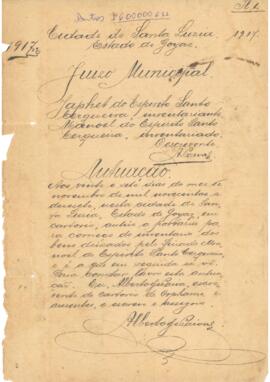 Fl. 1
Autos P600000611
Cidade de Santa Luzia,
1917.
1917
Estado de Goyaz.
Juizo Municipal
Japhet do Espirito Santo
Cerqueira, inventariante
Manoel do Espirito Santo
Cerqueira, inventariado.
O escrevente
Autuação.
Aos vinte e sete dias do mes de
novembro de mil novecentos e
dezesete, nesta cidade de San-
ta Luzia, Estado de Goyaz, em
cartorio, autuo a portaria
para começo de inventario de
bens deixados pelo finado Ma-
noel do Espirito Santo Cerqueira,
e é a que em seguida se vê.
Para constar lavro esta autua-
ção. Eu,
vente do cartorio de Orphams e
ausentes, o escrevi e assigno.